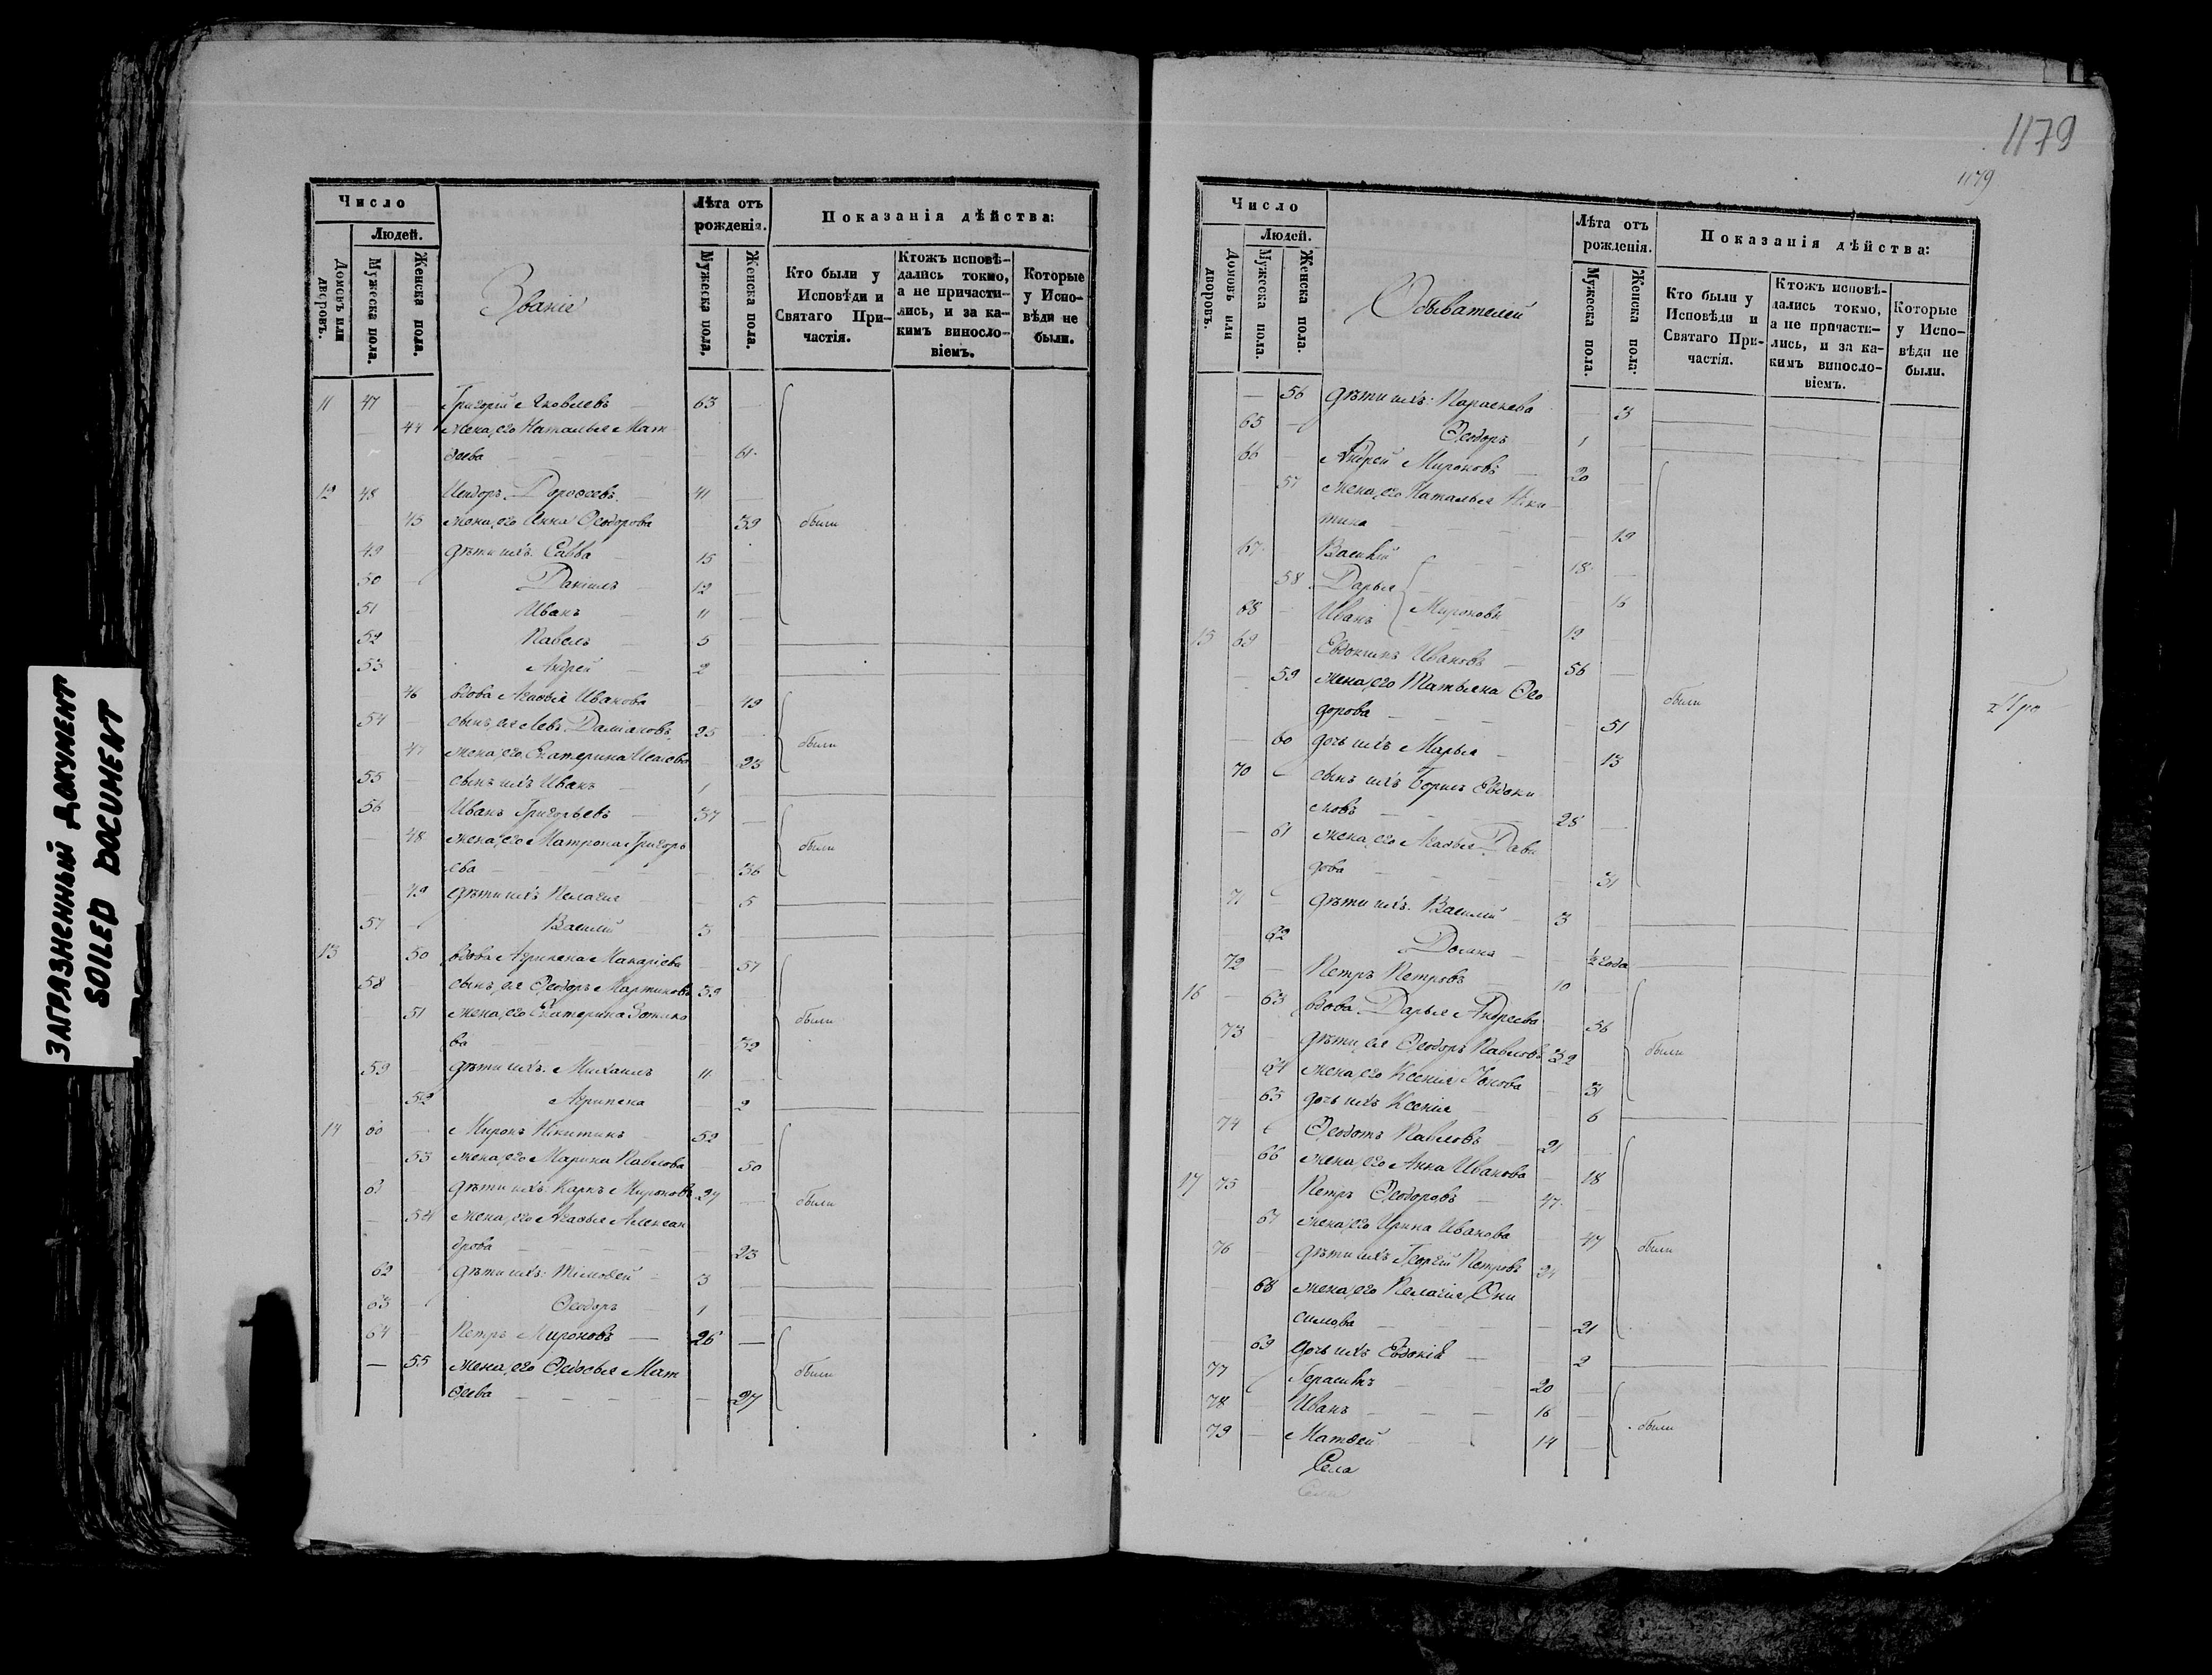 ЗАГРАЗНЕННЫЙ ДОКУМЕНТ
SOILED DOCUMENT
Число
Людей.
Домовъ или дворовъ.
Мужеска пола.
Женска пола.
Званіе
Лѣта отъ рожденія.
Мужеска пола.
Женска пола.
Показанія дѣйства:
Кто были у Исповѣди и Святаго Причастія.
Ктожъ исповѣдались токмо, а не причастились, и за какимъ винословіемъ.
Которые у Исповѣди не были.
11 47 — Григорій Яковлевъ — 63 —
— 44 жена его Наталья Мат
ѳеева — — — — 61
12 48 Исидоръ Дороѳеевъ — 41 —
45 жена его Анна Ѳеодорова 39 были
49 — дѣти ихъ: Савва — 15 —
50 — Даніилъ — 12 —
51 — Иванъ — 11 —
52 — Павелъ — 5
53 — Андрей — 2
46 вдова Агаѳья Иванова — 49
54 — сынъ ея Левъ Даміановъ 25 — были
47 жена его Екатерина — 23
55 — сынъ ихъ Иванъ — 1
56 — Иванъ Григорьевъ — 37 —
— 48 жена его Матрона Григорь были
ева — — — — 36
— 49 дѣти ихъ Пелагія — — 5
57 — Василій — 3
13 50 вдова Агрипена Макаріева — 57
58 — сынъ ея Ѳеодоръ Мартиновъ 39 —
— 51 жена его Екатерина Зотико были
ва — — — — 32
59 — дѣти ихъ: Михаилъ 11
— 52 Агрипена 2
14 60 — Миронъ Никитинъ — 52 —
— 53 жена его Марина Павлова — 50
61 — дѣти ихъ: Карпъ Мироновъ 27 — были
— 54 жена его Агаѳья Алексан
дрова — — — — 23
62 — дѣти ихъ: Тимоѳей — 3
63 — Ѳеодоръ 1
64 — Петръ Мироновъ — 26 —
— 55 жена его Ѳедосья Мат были
ѳеева — — — — 27
1179
1179
Число
Людей.
Домовъ или дворовъ.
Мужеска пола.
Женска пола.
Обывателей
Лѣта отъ рожденія.
Мужеска пола.
Женска пола.
Показанія дѣйства:
Кто были у Исповѣди и Святаго Причастія.
Ктожъ исповѣдались токмо, а не причастились, и за какимъ винословіемъ.
Которые у Исповѣди не были.
— 56 дѣти ихъ: Параскева — 3
65 — Ѳеодоръ — 1 —
66 — Андрей Мироновъ — 20 —
— 57 жена его Наталья Ники
тина — — — 19
67 Василій — — — 18 —
58 Дарья — — — 16
68 — Иванъ Мироновы — 12
15 69 Евдокимъ Ивановъ — 56 —
— 59 жена его Татьяна Ѳео были
дорова — — — — 51
— 60 дочь ихъ Марья — 13
70 — сынъ ихъ Борисъ Евдоки
мовъ — — — 28 —
— 61 жена его Агаѳья Дави
дова — — — — 31
71 — дѣти ихъ: Василій — 3
62 Домна — — ½ года
72 — Петръ Петровъ — 10
16 — 63 вдова Дарья Андреева — 56
73 — дѣти ея Ѳеодоръ Павловъ 32 были
64 жена его Ксенія Іонова — 31
— 65 дочь ихъ Ксенія — — 6
74 Ѳеодотъ Павловъ — 21 —
66 жена его Анна Иванова — 18
17 75 Петръ Ѳеодоровъ — 47 —
67 жена его Ирина Иванова 47 были
76 — дѣти ихъ Георгій Петровъ 24 —
— 68 жена его Пелагія Они
симова — — — 21
— 69 дочь ихъ Евдокія — 2
77 Герасимъ — — 20 —
78 — Иванъ — — — 16 — были
79 — Матѳей — — 14 —
Села